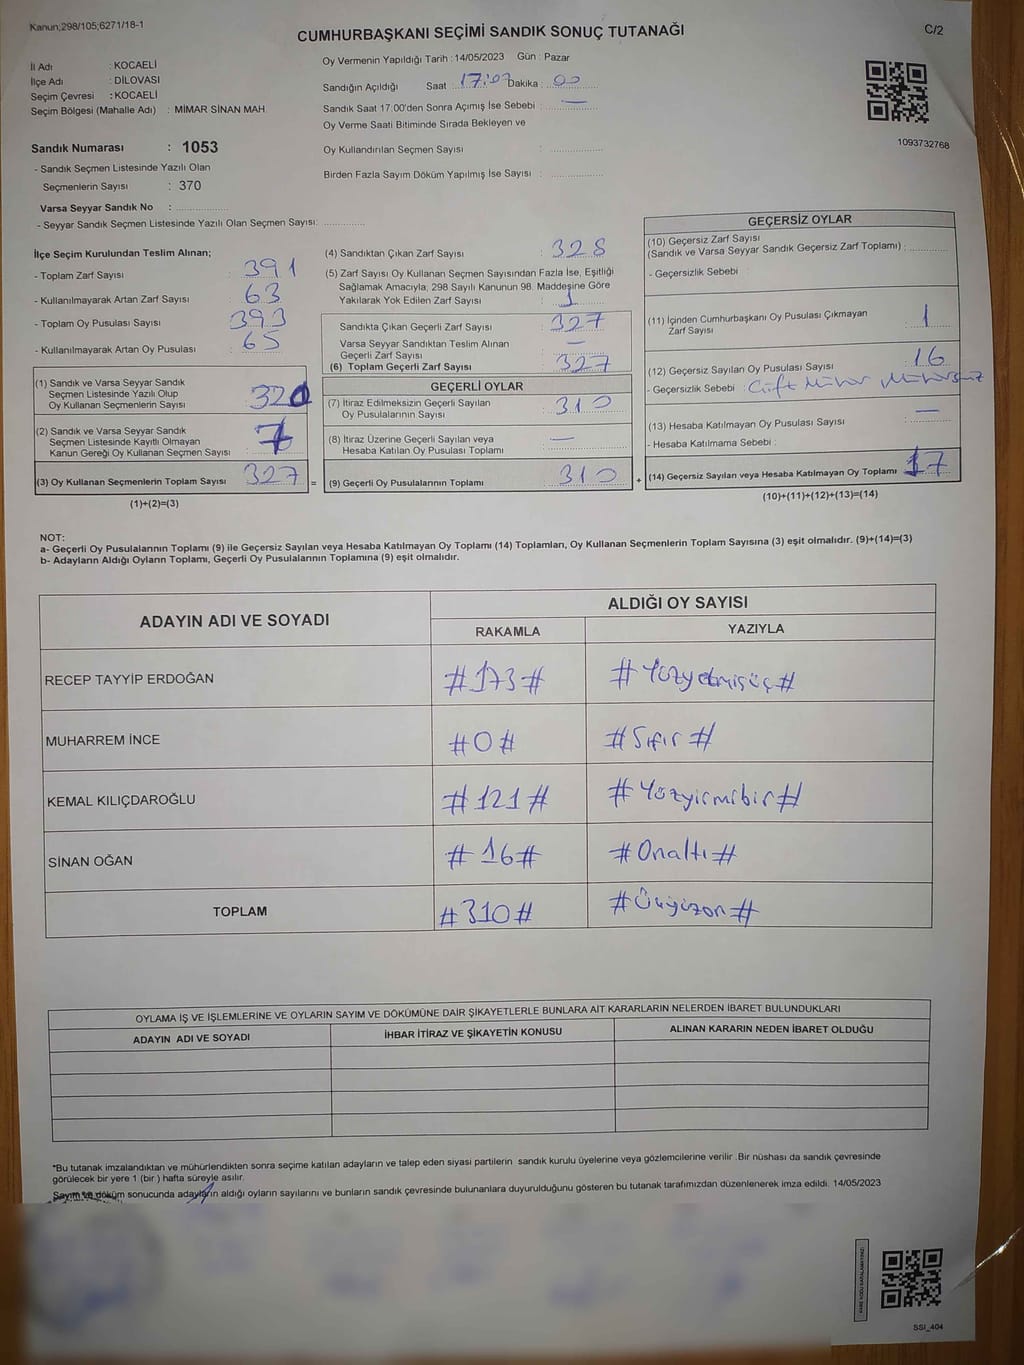 Kanun;298/105;6271/18-1
CUMHURBAŞKANI SEÇİMİ SANDIK SONUÇ TUTANAĞI
C/2
İl Adı : KOCAELİ
İlçe Adı : DİLOVASI
Seçim Çevresi : KOCAELİ
Seçim Bölgesi (Mahalle Adı) : MİMAR SİNAN MAH.
Sandık Numarası : 1053
- Sandık Seçmen Listesinde Yazılı Olan
Seçmenlerin Sayısı : 370
Varsa Seyyar Sandık No :
- Seyyar Sandık Seçmen Listesinde Yazılı Olan Seçmen Sayısı:
Oy Vermenin Yapıldığı Tarih : 14/05/2023 Gün : Pazar
Sandığın Açıldığı Saat : 17:07 Dakika : 00
Sandık Saat 17.00'den Sonra Açımış İse Sebebi : —
Oy Verme Saati Bitiminde Sırada Bekleyen ve
Oy Kullandırılan Seçmen Sayısı :
Birden Fazla Sayım Döküm Yapılmış İse Sayısı :
1093732768
İlçe Seçim Kurulundan Teslim Alınan;
- Toplam Zarf Sayısı : 391
- Kullanılmayarak Artan Zarf Sayısı : 63
- Toplam Oy Pusulası Sayısı : 393
- Kullanılmayarak Artan Oy Pusulası : 65
(1) Sandık ve Varsa Seyyar Sandık
Seçmen Listesinde Yazılı Olup
Oy Kullanan Seçmenlerin Sayısı : 320
(2) Sandık ve Varsa Seyyar Sandık
Seçmen Listesinde Kayıtlı Olmayan
Kanun Gereği Oy Kullanan Seçmen Sayısı : 7
(3) Oy Kullanan Seçmenlerin Toplam Sayısı : 327
(1)+(2)=(3)
=
(4) Sandıktan Çıkan Zarf Sayısı : 328
(5) Zarf Sayısı Oy Kullanan Seçmen Sayısından Fazla İse, Eşitliği
Sağlamak Amacıyla, 298 Sayılı Kanunun 98. Maddesine Göre
Yakılarak Yok Edilen Zarf Sayısı : 1
Sandıkta Çıkan Geçerli Zarf Sayısı : 327
Varsa Seyyar Sandıktan Teslim Alınan
Geçerli Zarf Sayısı : —
(6) Toplam Geçerli Zarf Sayısı : 327
GEÇERLİ OYLAR
(7) İtiraz Edilmeksizin Geçerli Sayılan
Oy Pusulalarının Sayısı : 310
(8) İtiraz Üzerine Geçerli Sayılan veya
Hesaba Katılan Oy Pusulası Toplamı : —
(9) Geçerli Oy Pusulalarının Toplamı : 310
+
GEÇERSİZ OYLAR
(10) Geçersiz Zarf Sayısı
(Sandık ve Varsa Seyyar Sandık Geçersiz Zarf Toplamı) :
- Geçersizlik Sebebi :
(11) İçinden Cumhurbaşkanı Oy Pusulası Çıkmayan
Zarf Sayısı : 1
(12) Geçersiz Sayılan Oy Pusulası Sayısı : 16
- Geçersizlik Sebebi : Çift Mühür Mühürsüz
(13) Hesaba Katılmayan Oy Pusulası Sayısı : —
- Hesaba Katılmama Sebebi :
(14) Geçersiz Sayılan veya Hesaba Katılmayan Oy Toplamı : 17
(10)+(11)+(12)+(13)=(14)
NOT:
a- Geçerli Oy Pusulalarının Toplamı (9) ile Geçersiz Sayılan veya Hesaba Katılmayan Oy Toplamı (14) Toplamları, Oy Kullanan Seçmenlerin Toplam Sayısına (3) eşit olmalıdır. (9)+(14)=(3)
b- Adayların Aldığı Oyların Toplamı, Geçerli Oy Pusulalarının Toplamına (9) eşit olmalıdır.
ADAYIN ADI VE SOYADI
ALDIĞI OY SAYISI
RAKAMLA YAZIYLA
RECEP TAYYİP ERDOĞAN #173# #Yüzyetmişüç#
MUHARREM İNCE #0# #Sıfır#
KEMAL KILIÇDAROĞLU #121# #Yüzyirmibir#
SİNAN OĞAN #16# #Onaltı#
TOPLAM #310# #Üçyüzon#
OYLAMA İŞ VE İŞLEMLERİNE VE OYLARIN SAYIM VE DÖKÜMÜNE DAİR ŞİKAYETLERLE BUNLARA AİT KARARLARIN NELERDEN İBARET BULUNDUKLARI
ADAYIN ADI VE SOYADI İHBAR İTİRAZ VE ŞİKAYETİN KONUSU ALINAN KARARIN NEDEN İBARET OLDUĞU
*Bu tutanak imzalandıktan ve mühürlendikten sonra seçime katılan adayların ve talep eden siyasi partilerin sandık kurulu üyelerine veya gözlemcilerine verilir .Bir nüshası da sandık çevresinde
görülecek bir yere 1 (bir ) hafta süreyle asılır.
Sayım ve döküm sonucunda adayların aldığı oyların sayılarını ve bunların sandık çevresinde bulunanlara duyurulduğunu gösteren bu tutanak tarafımızdan düzenlenerek imza edildi. 14/05/2023
SSI_404